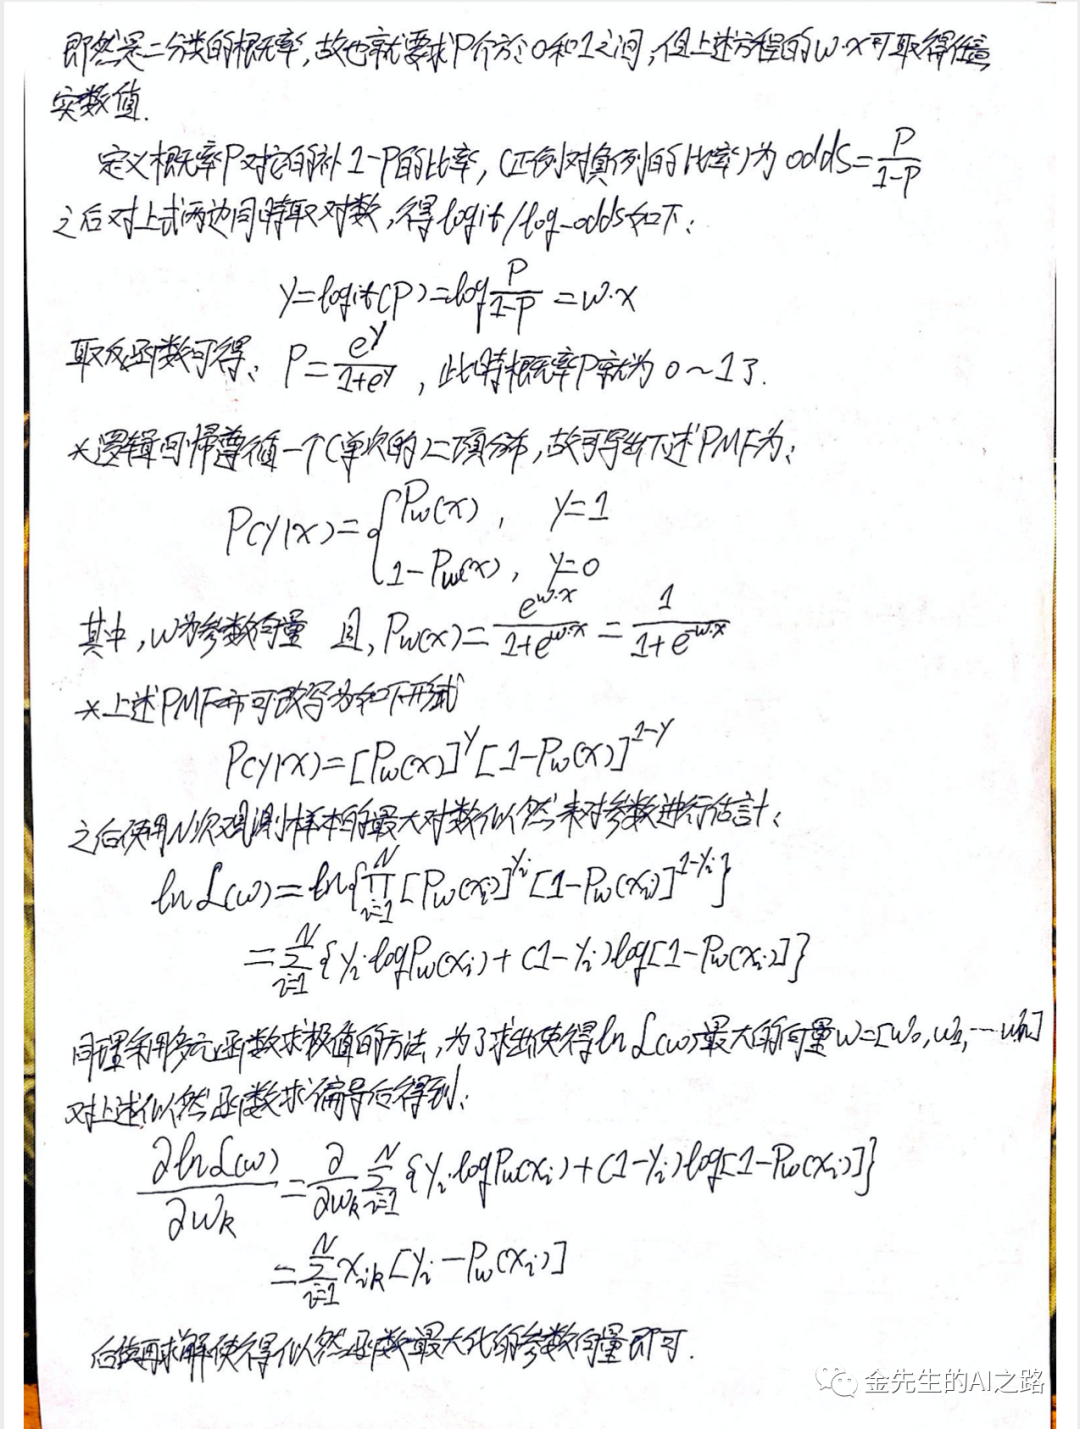 即然是二分类的概率,故也就要求P介于0和1之间,但上述方程的w·x可取得任意
实数值.
定义概率P对它的补1-P的比率,(正例对负例的比率)为 odds=P/(1-P)
之后对上式两边同时取对数,得logit/log-odds如下:
y=logit(P)=log P/(1-P) =w·x
取反函数可得: P=e^y/(1+e^y) ,此时概率P就为0~1了.
*逻辑回归遵循一个(单次的)二项分布,故可写出下述PMF为:
P(y|x)={Pw(x), y=1
1-Pw(x), y=0
其中,w为参数向量 且,Pw(x)=e^(w·x)/(1+e^(w·x))=1/(1+e^(-w·x))
*上述PMF亦可改写为如下形式
P(y|x)=[Pw(x)]^y[1-Pw(x)]^(1-y)
之后使用N次观测样本的最大对数似然来对参数进行估計:
ln L(w)=ln{∏_{i=1}^{N}[Pw(xi)]^(yi)[1-Pw(xi)]^(1-yi)}
=∑_{i=1}^{N}{yi·logPw(xi)+(1-yi)log[1-Pw(xi)]}
同理采用多元函数求极值的方法,为了求出使得ln L(w)最大的向量w=[w0,w1,…wn]
对上述似然函数求偏导后得到:
∂lnL(w)/∂wk=∂/∂wk ∑_{i=1}^{N}{yi·logPw(xi)+(1-yi)log[1-Pw(xi)]}
=∑_{i=1}^{N}xik[yi-Pw(xi)]
后使用求解使得似然函数最大化的参数向量即可.
金先生的AI之路